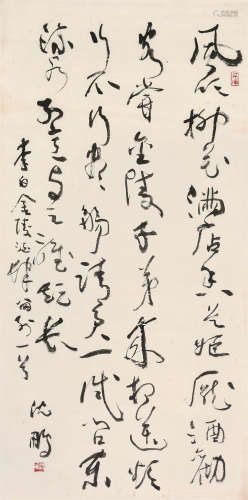 風吹柳花滿店香吴姬壓酒勸
客嘗金陵子弟来相送欲
行不行各盡觴請君試問東
流水别意与之誰短長
李白金陵酒肆留别一首
沈鵬